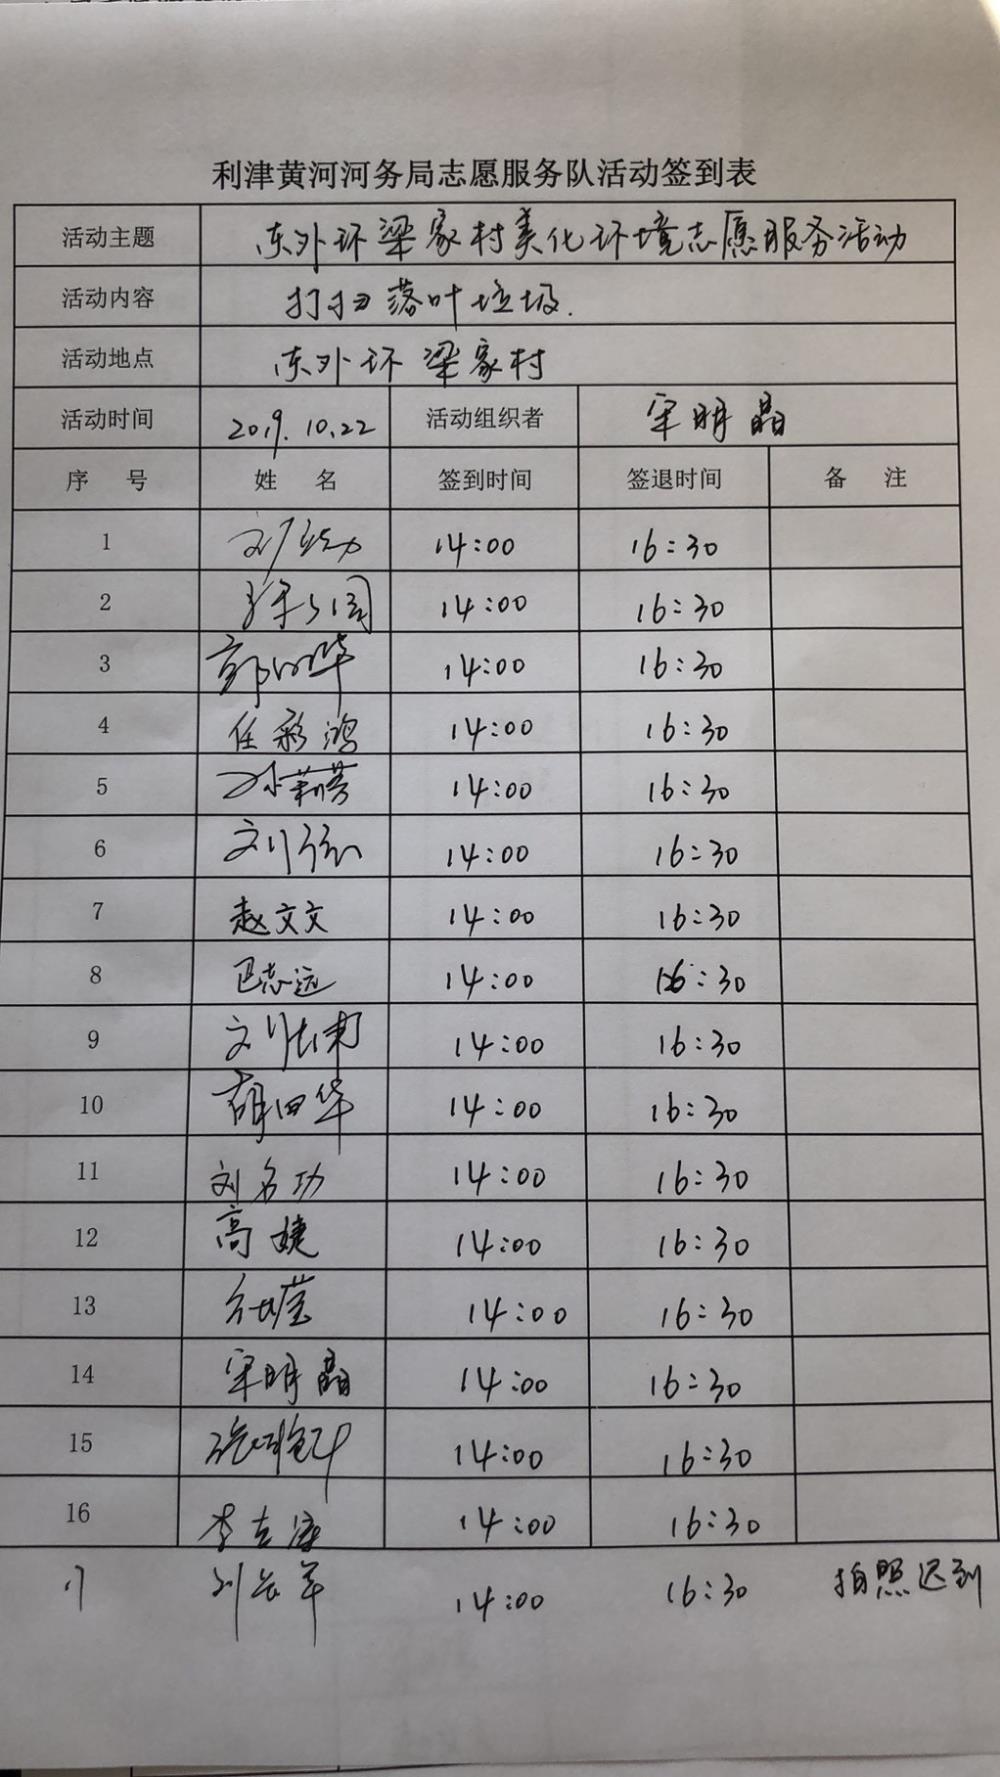 利津黄河河务局志愿服务队活动签到表
活动主题 东外环梁家村美化环境志愿服务活动
活动内容 打扫落叶垃圾.
活动地点 东外环梁家村
活动时间 2019.10.22 活动组织者 宋明晶
序 号 姓 名 签到时间 签退时间 备 注
1 14:00 16:30
2 14:00 16:30
3 14:00 16:30
4 任彩鸿 14:00 16:30
5 孙莉芳 14:00 16:30
6 刘 14:00 16:30
7 赵文文 14:00 16:30
8 巴志远 14:00 16:30
9 刘 14:00 16:30
10 胡田华 14:00 16:30
11 刘名功 14:00 16:30
12 高婕 14:00 16:30
13 14:00 16:30
14 宋明晶 14:00 16:30
15 14:00 16:30
16 李 14:00 16:30
17 刘长军 14:00 16:30 拍照迟到